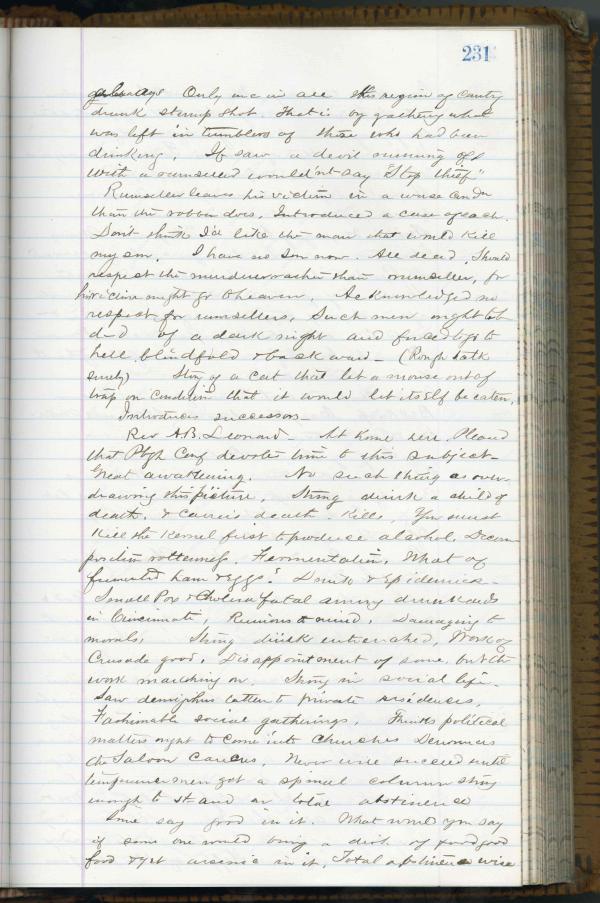 231
Only one in all this region of Country
drunk stump shot. That is by gathering what
was left in tumblers of those who had been
drinking. If saw a devil running off
with a rumseller wouldn't say "Stop thief"
Rumseller leaves his victim in a worse condn
than the robber does. Introduced a case of each.
Don't think I'd like the man that would kill
my son. I have no son now. All dead. Should
respect the murderer rather than rumseller, for
his victim might go to heaven. Acknowledged no
respect for rumsellers. Such men ought to be
of a dark night and forced to go to
hell blindfold & backward - (Rough talk
surely) Story of a cat that let a mouse out of
trap on condition that it would let itself be eaten.
Introduces successor -
Rev A.B. Leonard - At home here. Pleased
that Pbgh Conf devotes time to this subject -
Great awakening. No such thing as over-
drawing this picture. Strong drink a child of
death. & carries death. Kills. You must
Kill the Kernel first to produce alcohol. Decom
position rottenness. Fermentation. What of
fermented ham & eggs? Drink & Epidemics -
Small Pox & Cholera fatal among drunkards
in Cincinnati. Ruinous to mind. Damaging to
morals. Strong drink entrenched. Work of
Crusade good. Disappointment of some, but the
work marching on. Strong in social life.
Saw demijohns taken to private residences.
Fashionable social gatherings. Thinks political
matters ought to come into Churches Denounces
the Saloon Caucus. Never will succeed until
temperance men get a spinal column strong
enough to stand on total abstinence
Some say good in it. What would you say
if some one would bring a dish of good
food & yet arsenic in it. Total abstinence wise